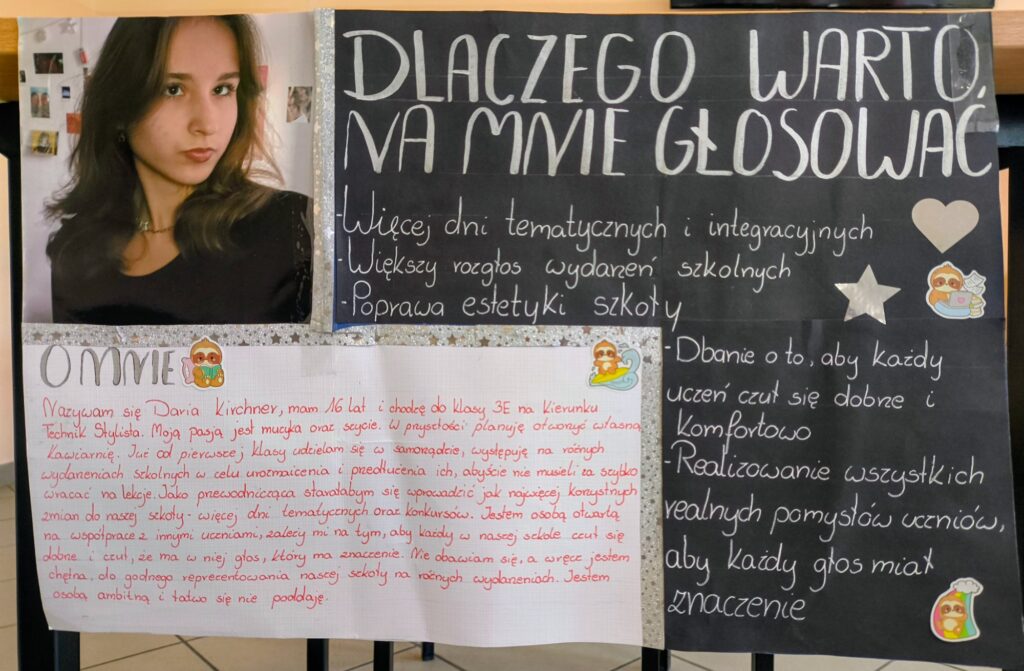 DLACZEGO WARTO
NA MNIE GŁOSOWAĆ
-Więcej dni tematycznych i integracyjnych
-Większy rozgłos wydarzeń szkolnych
-Poprawa estetyki szkoły
-Dbanie o to, aby każdy
uczeń czuł się dobrze i
komfortowo
-Realizowanie wszystkich
realnych pomysłów uczniów,
aby każdy głos miał
znaczenie
O MNIE
Nazywam się Daria Kirchner, mam 16 lat i chodzę do klasy 3E na kierunku
Technik Stylista. Moją pasją jest muzyka oraz szycie. W przyszłości planuję otworzyć własną
kawiarnię. Już od pierwszej klasy udzielam się w samorządzie, występuję na różnych
wydarzeniach szkolnych w celu urozmaicenia i przedłużenia ich, abyście nie musieli za szybko
wracać na lekcje. Jako przewodnicząca starałabym się wprowadzić jak najwięcej korzystnych
zmian do naszej szkoły - więcej dni tematycznych oraz konkursów. Jestem osobą otwartą
na współpracę z innymi uczniami, zależy mi na tym, aby każdy w naszej szkole czuł się
dobrze i czuł, że ma w niej głos, który ma znaczenie. Nie obawiam się, a wręcz jestem
chętna, do godnego reprezentowania naszej szkoły na różnych wydarzeniach. Jestem
osobą ambitną i łatwo się nie poddaję.